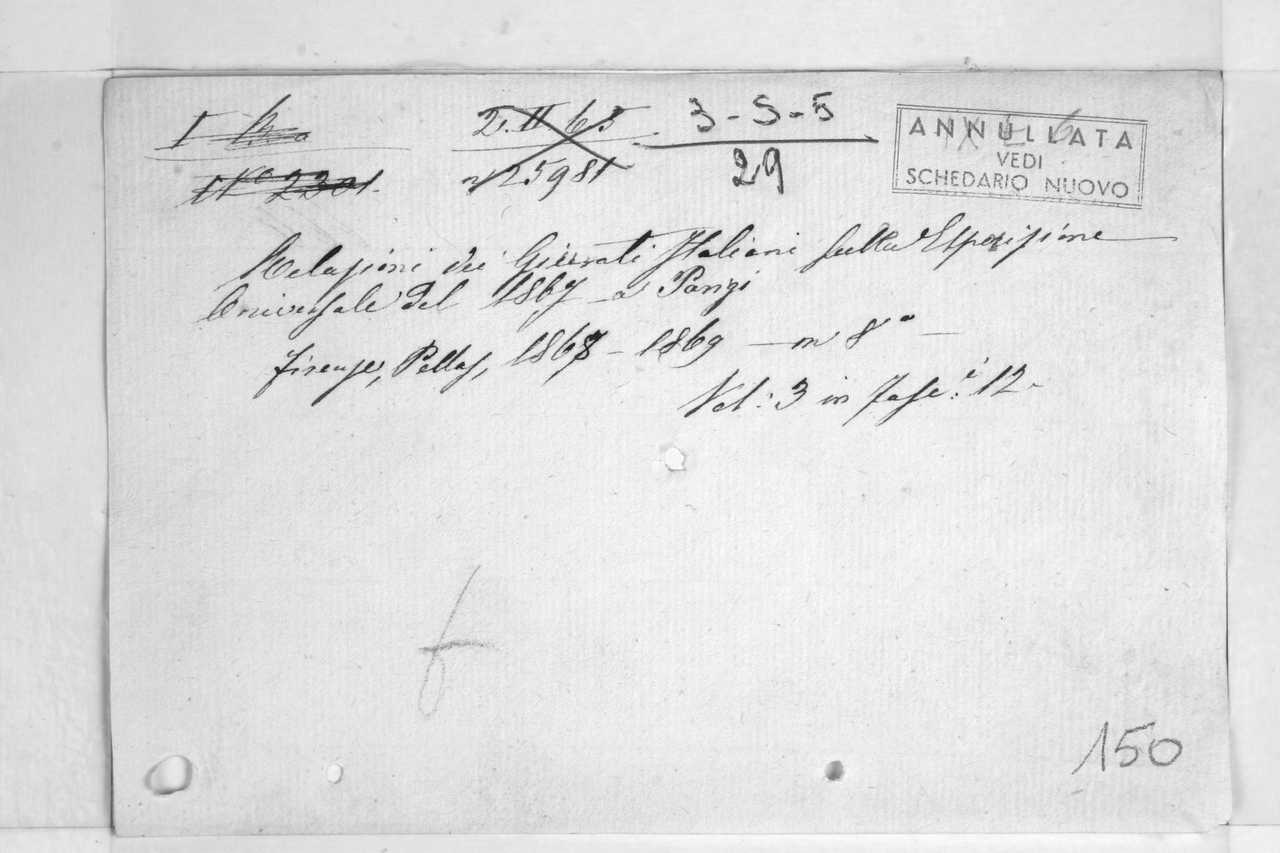 2. II 65
3-S-5
n 25981
29
ANNULLATA
VEDI
SCHEDARIO NUOVO
Relazioni dei Giurati Italiani sulla Esposizione
Universale del 1867 a Parigi
Firenze, Pellas, 1868-1869 — in 8° —
Vol: 3 in fasc.i 12.
f
150